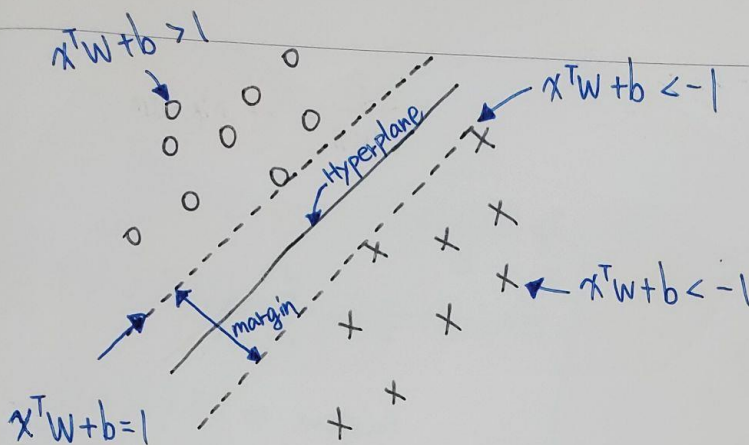 xᵀw+b>1
xᵀw+b<-1
Hyperplane
xᵀw+b<-1
margin
xᵀw+b=1